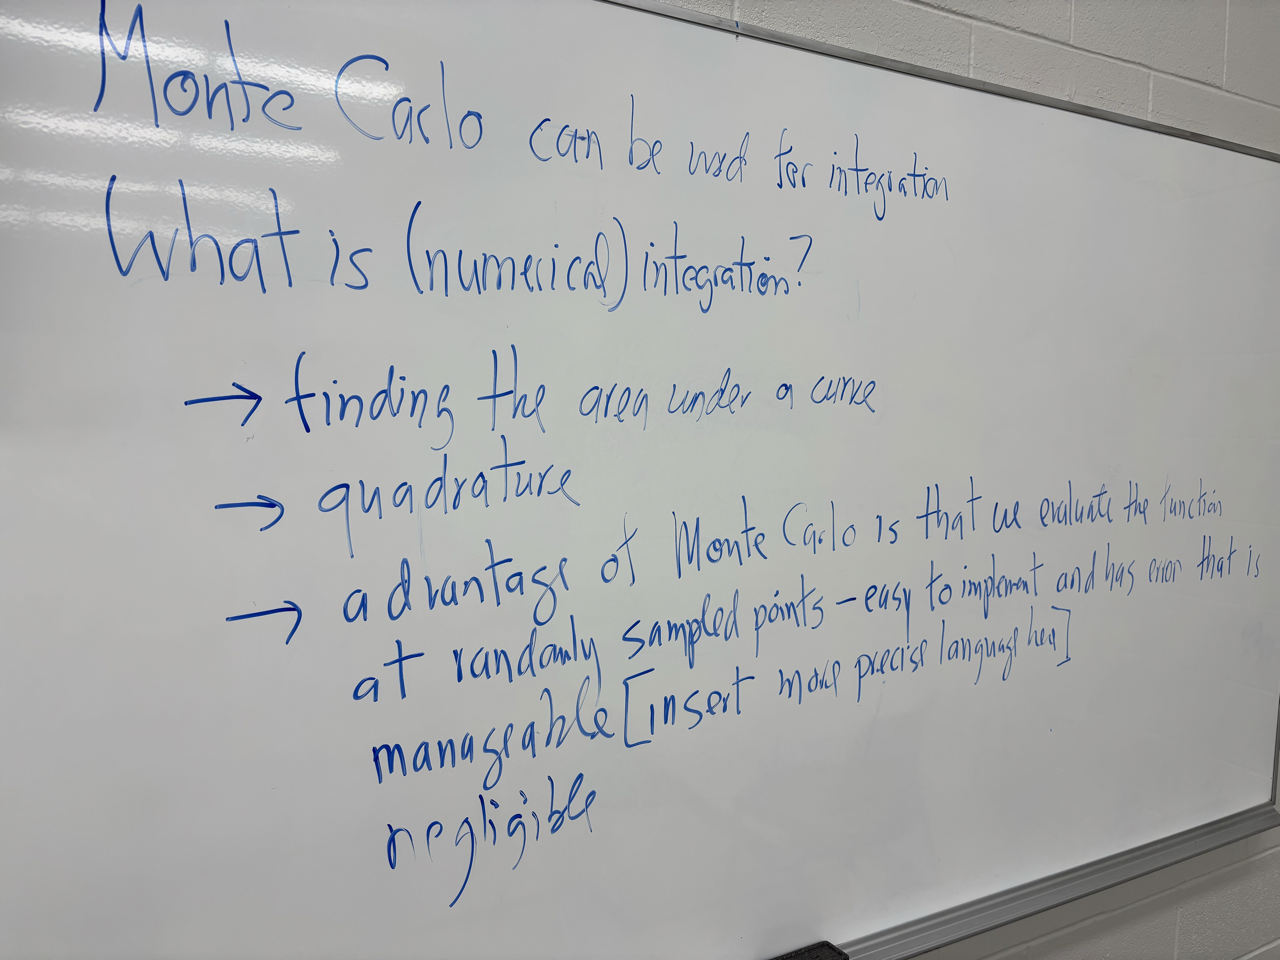 Monte Carlo can be used for integration
What is (numerical) integration?
→ finding the area under a curve
→ quadrature
→ advantage of Monte Carlo is that we evaluate the function
at randomly sampled points – easy to implement and has error that is
manageable [insert more precise language here]
negligible